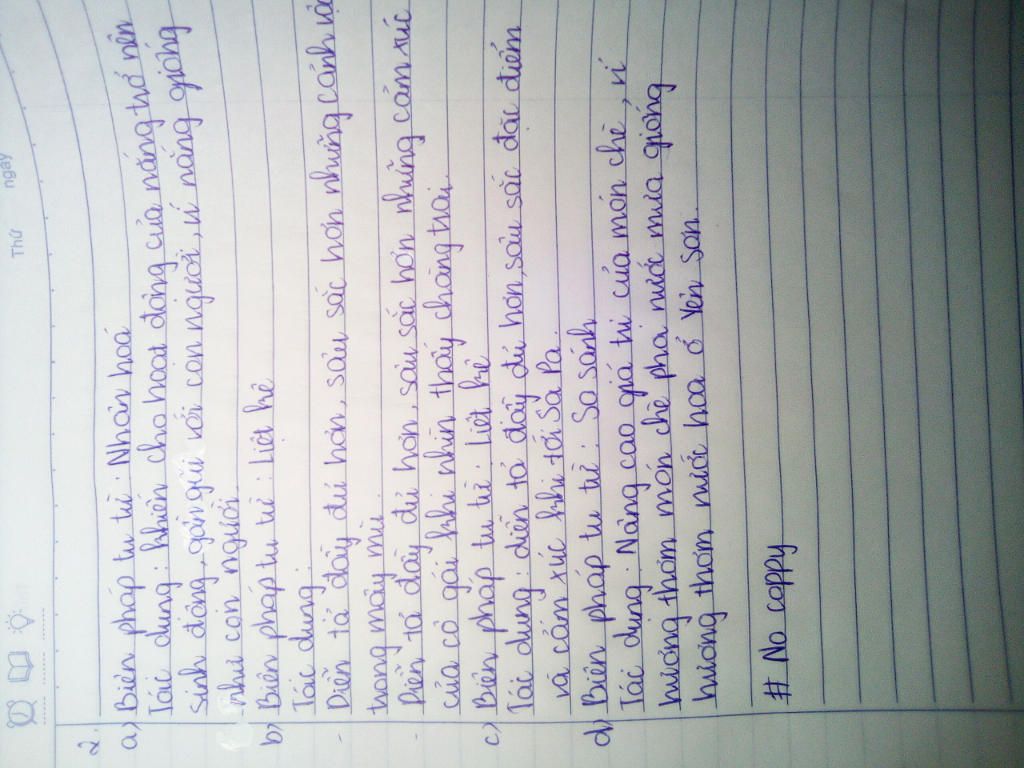 Thứ ngày
2.
a) Biện pháp tu từ : Nhân hoá
Tác dụng : khiến cho hoạt động của nắng trở nên
sinh động, gần gũi với con người, ví nắng giống
như con người
b) Biện pháp tu từ : Liệt kê
Tác dụng :
- Diễn tả đầy đủ hơn, sâu sắc hơn những cảnh vật
trong mây mù.
- Diễn tả đầy đủ hơn, sâu sắc hơn những cảm xúc
của cô gái khi nhìn thấy chàng trai.
c) Biện pháp tu từ : Liệt kê
Tác dụng : diễn tả đầy đủ hơn, sâu sắc đặc điểm
và cảm xúc khi tới Sa Pa.
d) Biện pháp tu từ : So sánh
Tác dụng : Nâng cao giá trị của món chè, ví
hương thơm món chè pha nước mưa giống
hương thơm nước hoa ở Yên Sơn.
# No coppy